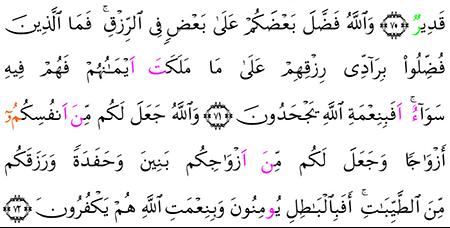 قَدِيرٌ ۝٧٠ وَاللَّهُ فَضَّلَ بَعْضَكُمْ عَلَىٰ بَعْضٍ فِى الرِّزْقِ ۚ فَمَا الَّذِينَ
فُضِّلُوا۟ بِرَآدِّى رِزْقِهِمْ عَلَىٰ مَا مَلَكَتَ اَيْمَٰنُهُمْ فَهُمْ فِيهِ
سَوَآءٌ ۚ اَفَبِنِعْمَةِ اللَّهِ يَجْحَدُونَ ۝٧١ وَاللَّهُ جَعَلَ لَكُم مِّنَ اَنفُسِكُمُۥٓ
أَزْوَٰجًا وَجَعَلَ لَكُم مِّنَ اَزْوَٰجِكُم بَنِينَ وَحَفَدَةً وَرَزَقَكُم
مِّنَ الطَّيِّبَٰتِ ۚ أَفَبِالْبَٰطِلِ يُومِنُونَ وَبِنِعْمَتِ اللَّهِ هُمْ يَكْفُرُونَ ۝٧٢